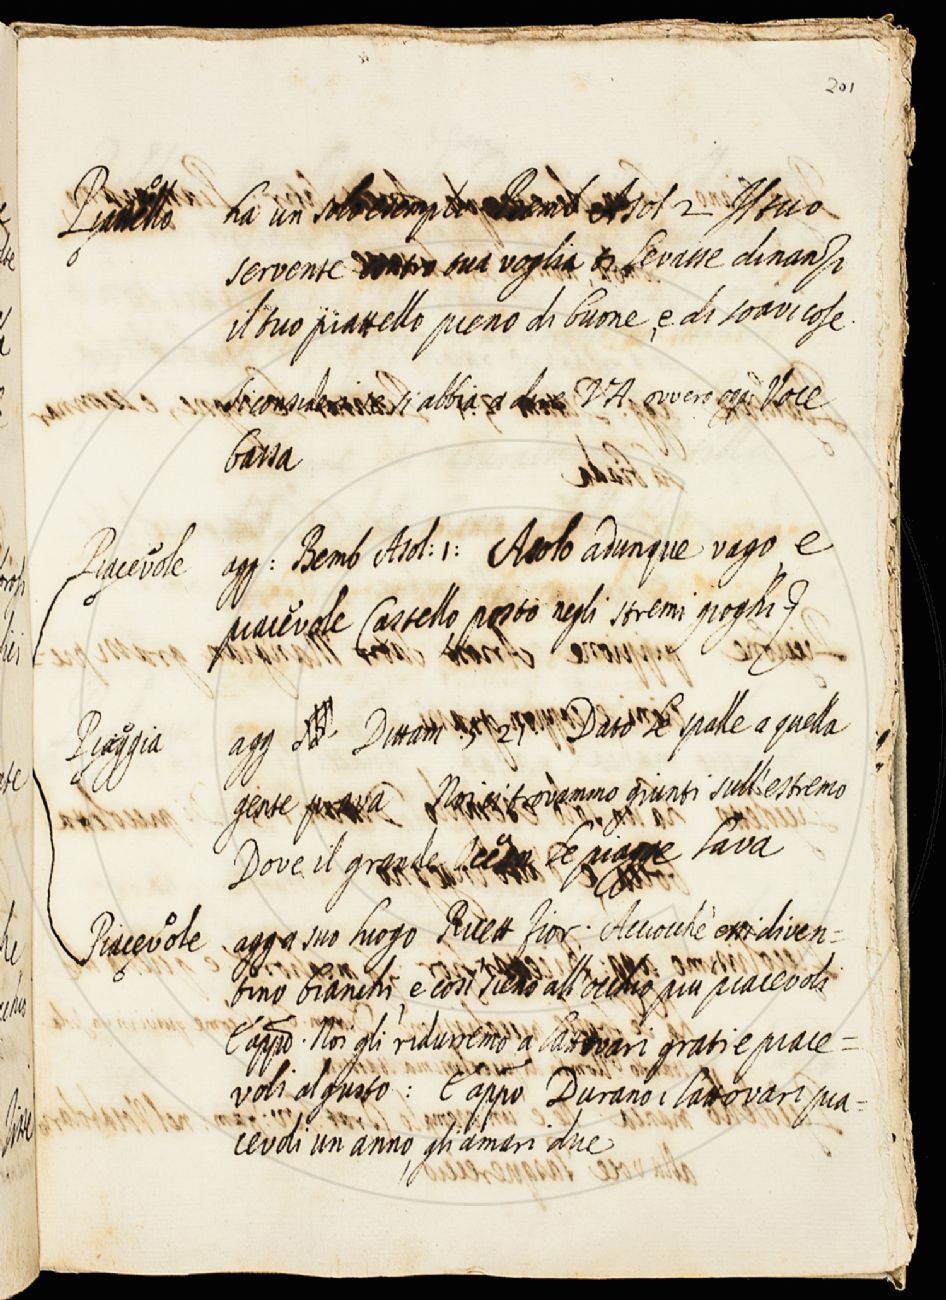 201
Piattello ha un solo esempio Bemb Asol 2 Il suo
servente contro sua voglia si levasse dinanzi
il suo piattello pieno di buone, e di soavi cose.
Si consideri se s'abbia a dire VA. ovvero ogg. Voce
bassa
Piacevole agg: Bemb Asol: 1: Asolo adunque vago e
piacevole Castello posto negli stremi gioghi
Piaggia agg Dittam 5 21 Dato le spalle a quella
gente prava Noi ci trovammo giunti sull'estremo
Dove il grande Ocean le piagge lava
Piacevole agg a suo luogo Ricett Fior. Acciocchè essi diven=
tino bianchi, e così sieno all'occhio più piacevoli
E appo. Noi gli ridurremo a lattovari grati e piace=
voli al gusto: E appo Durano i lattovari pia=
cevoli un anno, gli amari due